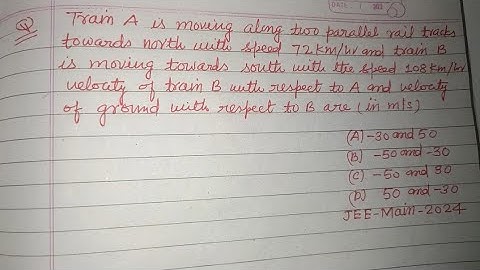 DATE:
Q Train A is moving along two parallel rail tracks
towards north with speed 72 km/hr and train B
is moving towards south with the speed 108 km/hr
velocity of train B with respect to A and velocity
of ground with respect to B are (in m/s)
(A) -30 and 50
(B) -50 and -30
(C) -50 and 30
(D) 50 and -30
JEE-Main-2024